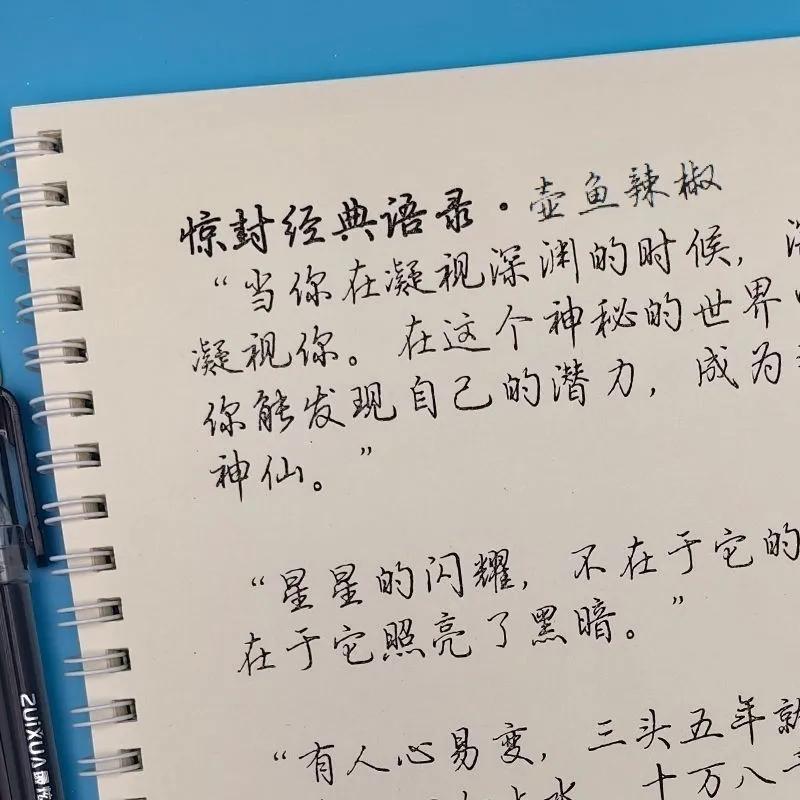 惊封经典语录·壶鱼辣椒
“当你在凝视深渊的时候,
凝视你。在这个神秘的世界
你能发现自己的潜力,成为
神仙。”
“星星的闪耀,不在于它的
在于它照亮了黑暗。”
“有人心易变,三头五年就
十万八千
ZUiXUA